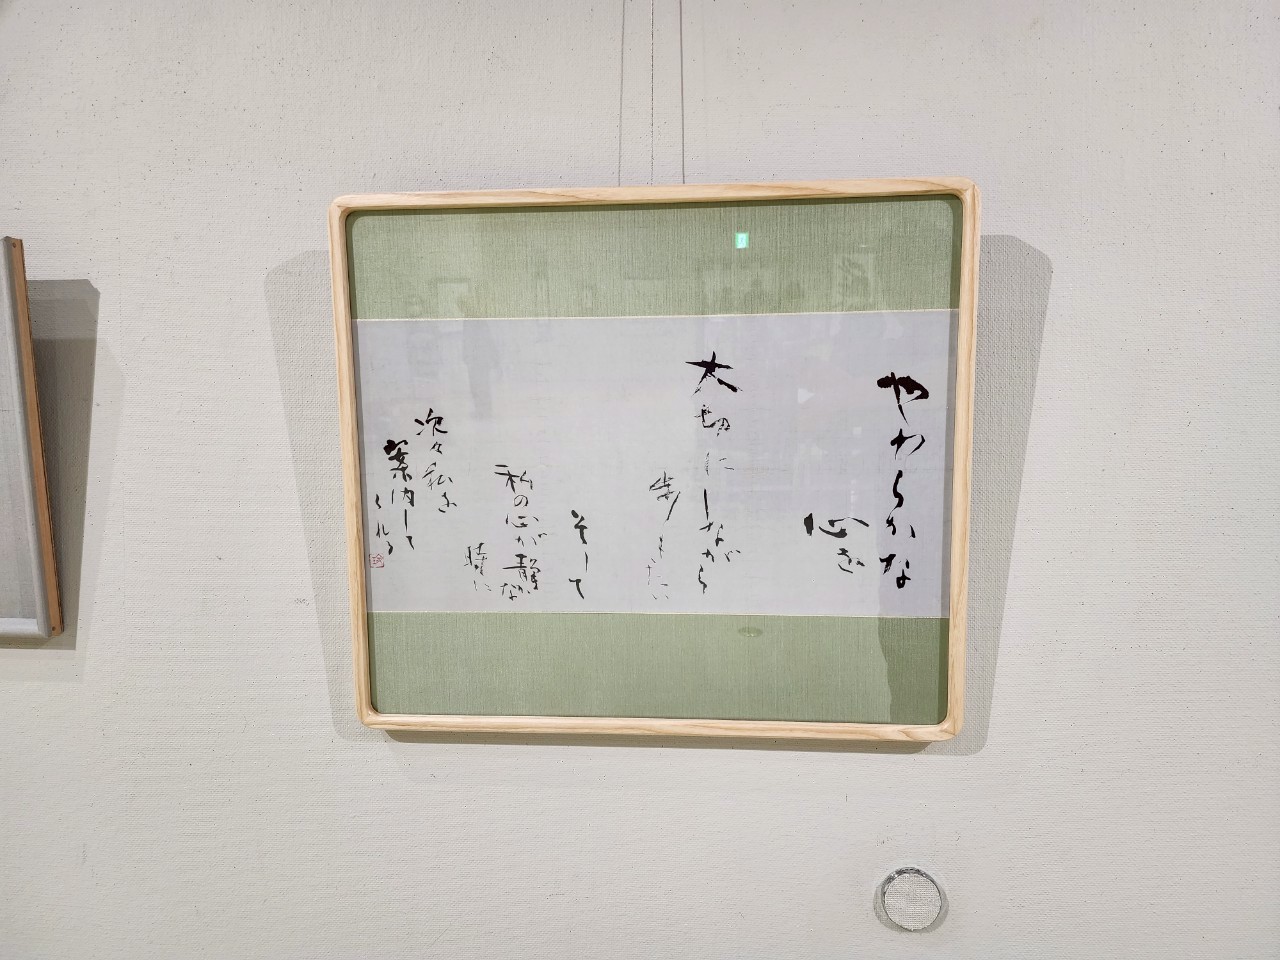 やわらかな
心を
大切にしながら
歩きたい
そして
私の心が静かな
時に
次々私を
案内して
くれる